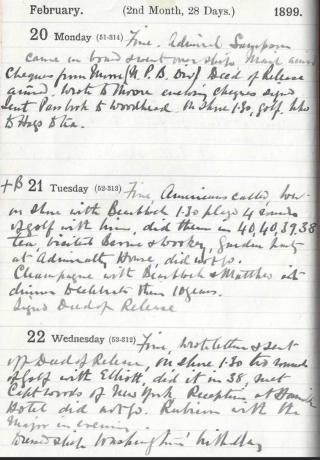 February. (2nd Month, 28 Days.) 1899.
20 Monday (51-314) Fine. Admiral Sampson
came on board & went over ship. Mail
Cheques from Moore (N.P.B. Div) Deed of Release
Wrote to Moore enclosing cheques signed
Sent Pass book to Woodhead. On shore 1.30, golf.
to Hogs to tea.
+B 21 Tuesday (52-313) Fine, Americans called,
on shore with 1.30 played 4 rounds
of golf with him, did them in 40, 40, 39, 38
tea, visited & Garden party
at Admiralty House, did not go.
Champagne with & Matthes at
dinner to celebrate their 10 years.
Signed Deed of Release
22 Wednesday (53-312) Fine, wrote letters & sent
off Deed of Release, on shore 1.30 two rounds
of golf with Elliott, did it in 38, met
Capt Woods of New York. Reception at
Hotel did not go. Rubicon with the
Major in evening.
Dressed ship Washington's birthday